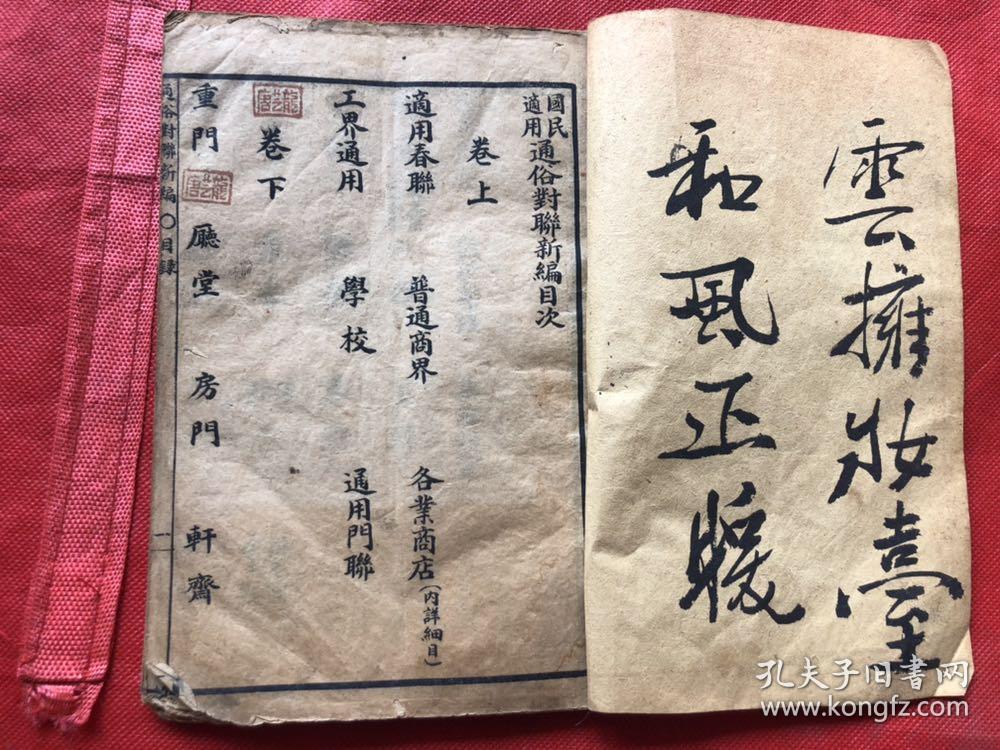 雲擁妝臺
和風正暖
國民適用通俗對聯新編目次
卷上
適用春聯 普通商界 各業商店(內詳細目)
工界通用 學校 通用門聯
卷下
重門 廳堂 房門 軒齋
通俗對聯新編〇目錄 一
孔夫子旧书网
www.kongfz.com